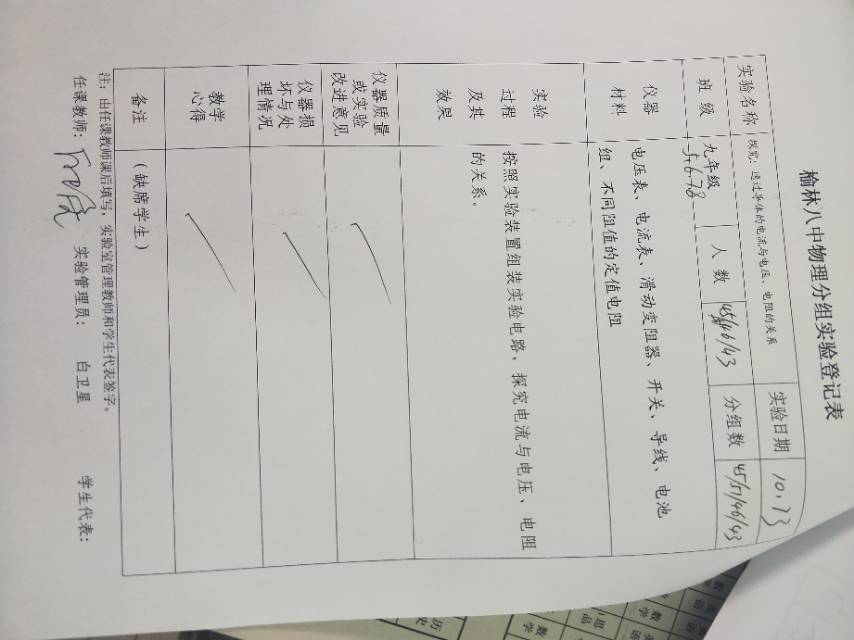 榆林八中物理分组实验登记表
实验名称 探究：通过导体的电流与电压、电阻的关系 实验日期 10.13
班 级 九年级 5.6.7.8 人 数 分组数 45/51/46/43
仪器
材料
电压表、电流表、滑动变阻器、开关、导线、电池
组、不同阻值的定值电阻
实验
过程
及其
效果
按照实验装置组装实验电路，探究电流与电压、电阻
的关系。
仪器质量
或实验
改进意见
仪器损
坏与处
理情况
教学
心得
备注 （缺席学生）
注：由任课教师课后填写，实验室管理教师和学生代表签字。
任课教师： 实验管理员： 白卫星 学生代表：
历史